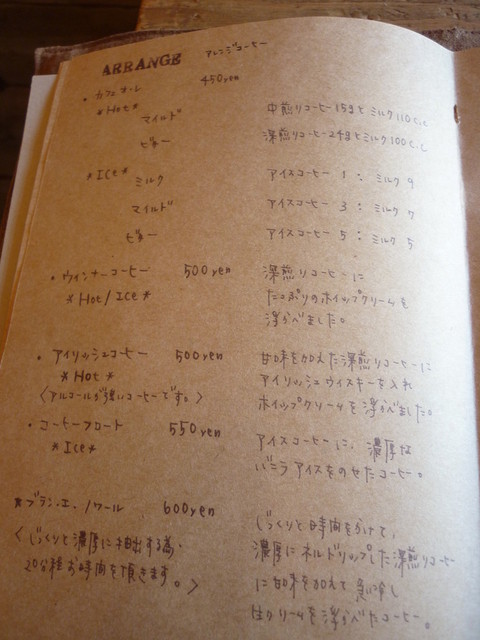 ARRANGE アレンジコーヒー
・カフェオーレ 450yen
*Hot*
マイルド 中煎りコーヒー15gとミルク110c.c
ビター 深煎りコーヒー24gとミルク100c.c
*ICe* ミルク アイスコーヒー 1 : ミルク 9
マイルド アイスコーヒー 3 : ミルク 7
ビター アイスコーヒー 5 : ミルク 5
・ウィンナーコーヒー 500yen 深煎りコーヒーに
*Hot/Ice* たっぷりのホイップクリームを
浮かべました。
・アイリッシュコーヒー 500yen 甘味を加えた深煎りコーヒーに
*Hot* アイリッシュウイスキーを入れ
〈アルコールが強いコーヒーです。〉 ホイップクリームを浮かべました。
・コーヒーフロート 550yen アイスコーヒーに、濃厚な
*Ice* バニラアイスをのせたコーヒー。
*ブラン・エ・ノワール 600yen じっくりと時間をかけて、
〈じっくりと濃厚に抽出する為、 濃厚にネルドリップした深煎りコーヒー
20分程お時間を頂きます。〉 に甘味を加えて急冷し
生クリームを浮かべたコーヒー。